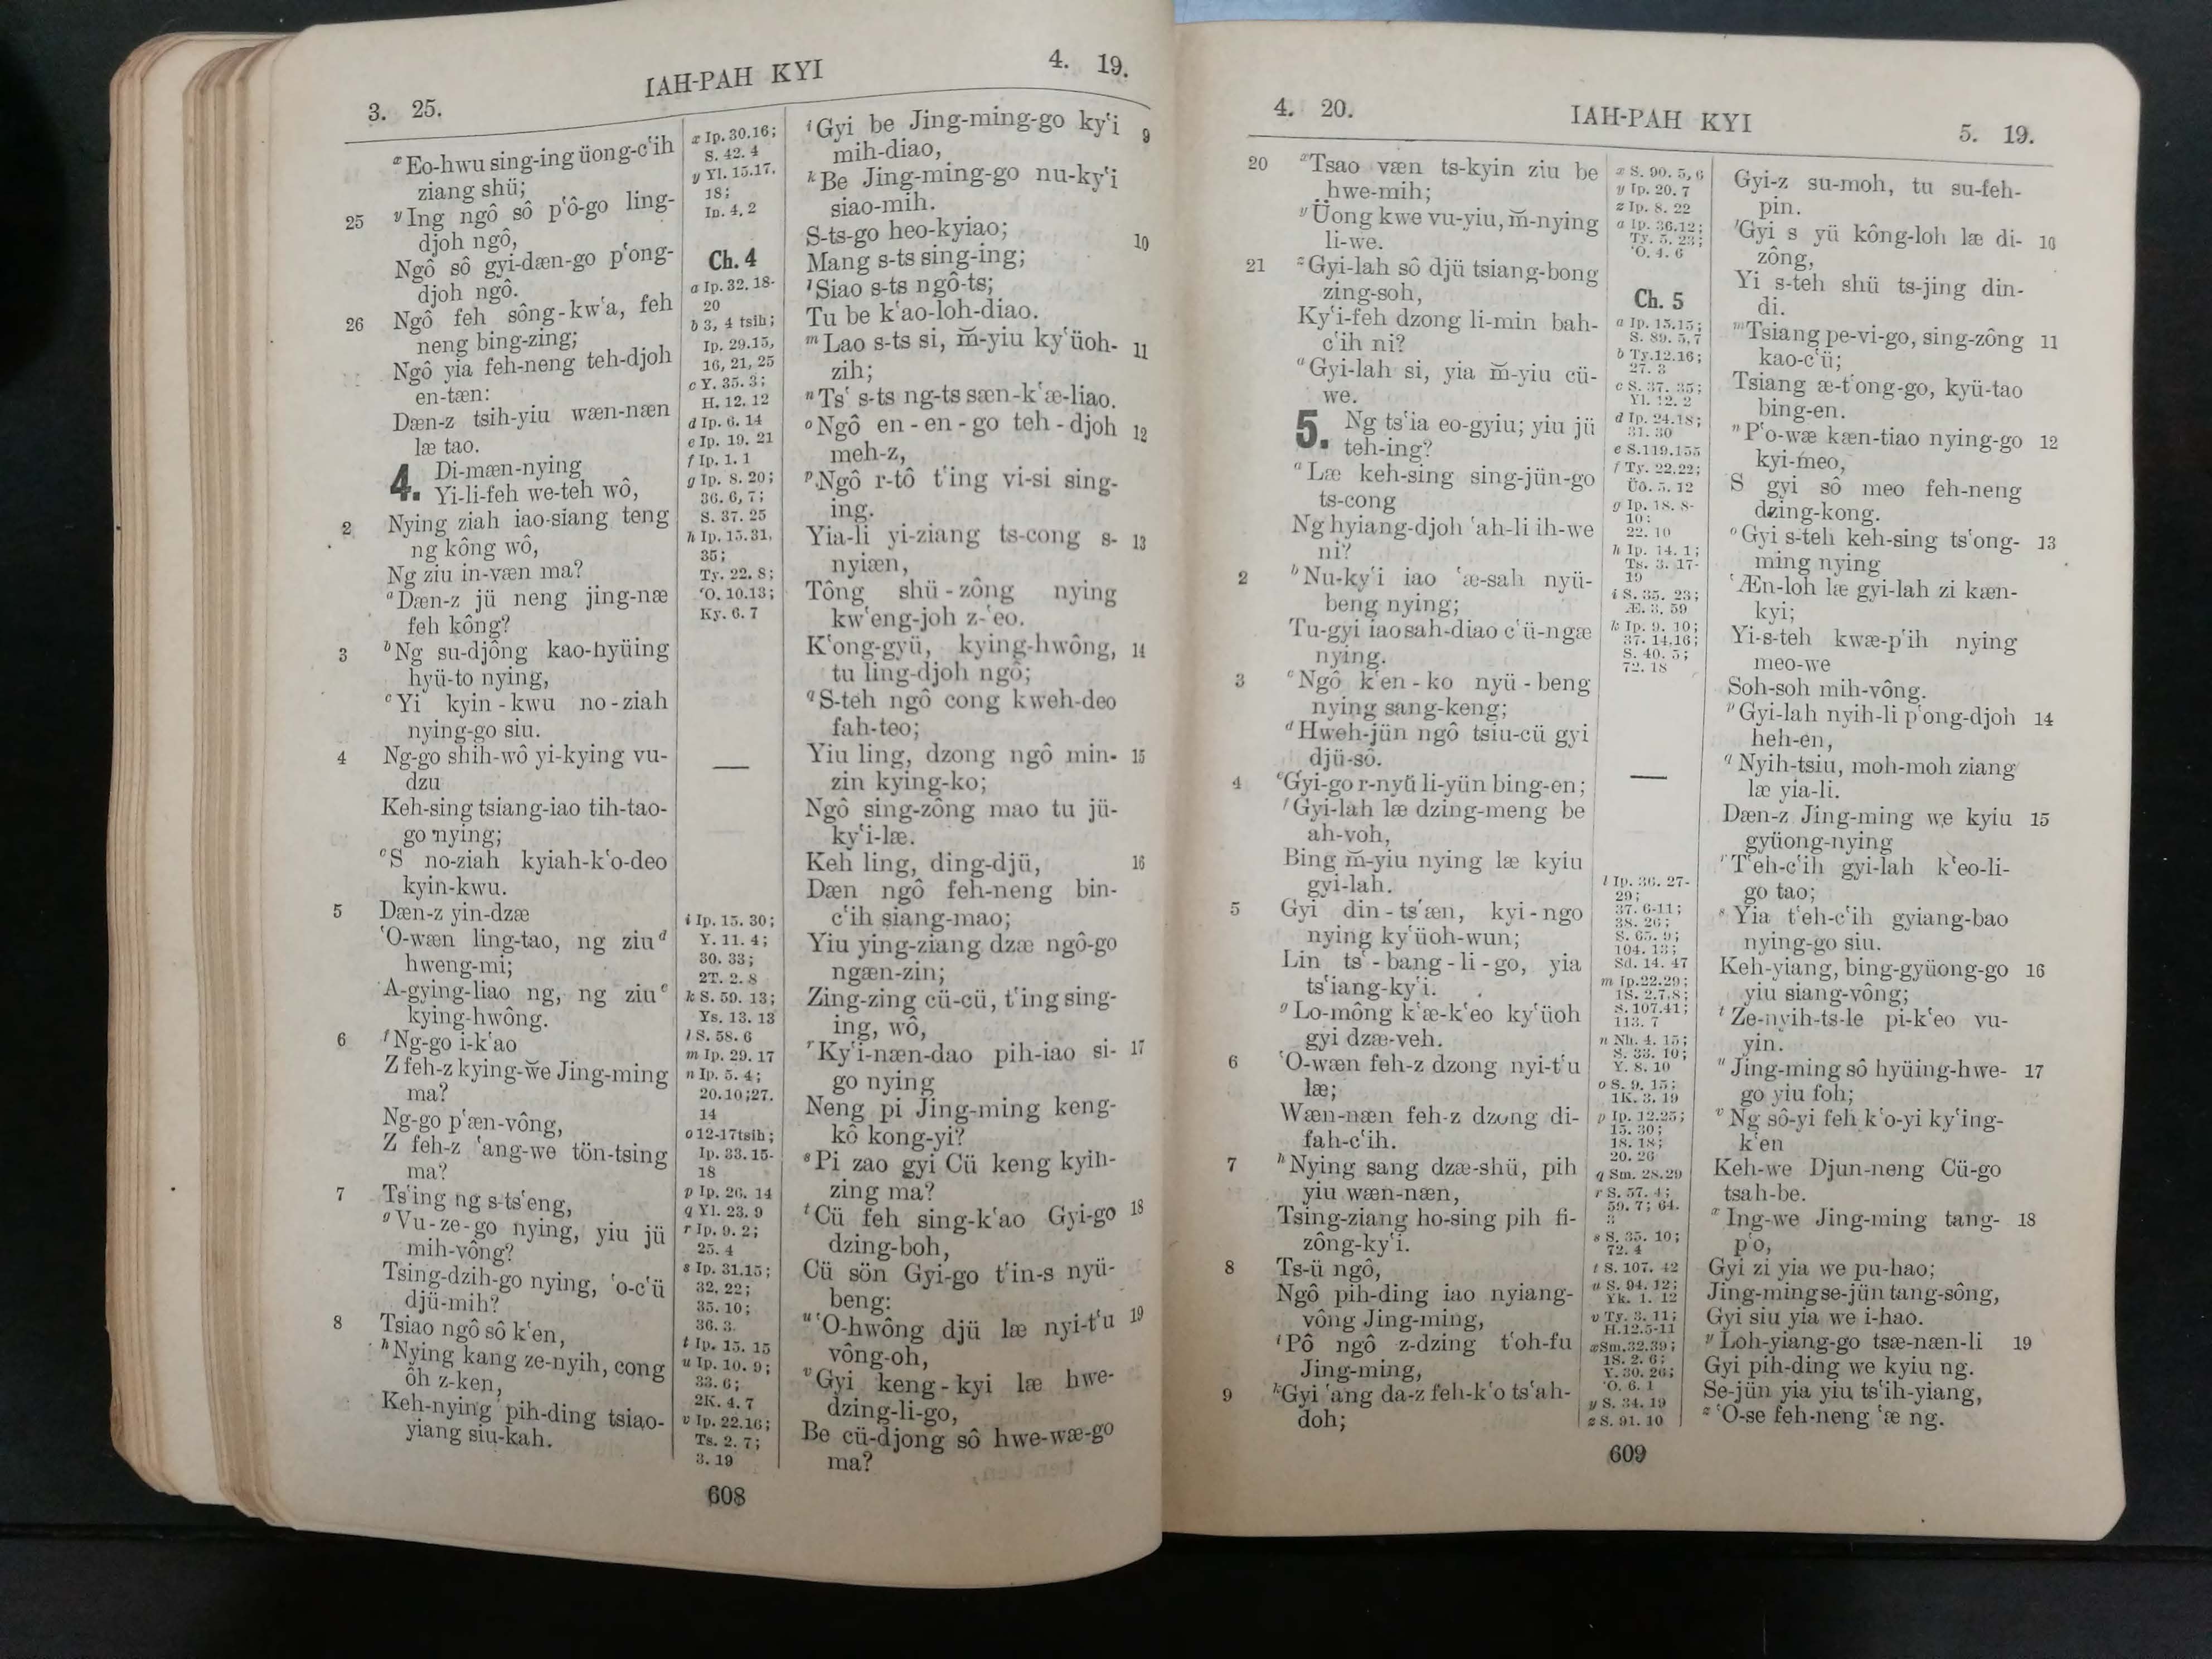 3. 25.
IAH-PAH KYI
4. 19.
x Eo-hwu sing-ing üong-c‘ih
ziang shü;
25 y Ing ngô sô p‘ô-go ling-
djoh ngô,
Ngô sô gyi-dæn-go p‘ong-
djoh ngô.
26 Ngô feh sông-kw‘a, feh
neng bing-zing;
Ngô yia feh-neng teh-djoh
en-tæn:
Dæn-z tsih-yiu wæn-næn
læ tao.
4. Di-mæn-nying
Yi-li-feh we-teh wô,
2 Nying ziah iao-siang teng
ng kông wô,
Ng ziu in-væn ma?
a Dæn-z jü neng jing-næ
feh kông?
3 b Ng su-djông kao-hyüing
hyü-to nying,
c Yi kyin-kwu no-ziah
nying-go siu.
4 Ng-go shih-wô yi-kying vu-
dzu
Keh-sing tsiang-iao tih-tao-
go nying;
c S no-ziah kyiah-k‘o-deo
kyin-kwu.
5 Dæn-z yin-dzæ
‘O-wæn ling-tao, ng ziu d
hweng-mi;
A-gying-liao ng, ng ziu e
kying-hwông.
6 f Ng-go i-k‘ao
Z feh-z kying-we̋ Jing-ming
ma?
Ng-go p‘æn-vông,
Z feh-z ‘ang-we tön-tsing
ma?
7 Ts‘ing ng s-ts‘eng,
g Vu-ze-go nying, yiu jü
mih-vông?
Tsing-dzih-go nying, ‘o-c‘ü
djü-mih?
8 Tsiao ngô sô k‘en,
h Nying kang ze-nyih, cong
ôh z-ken,
Keh-nying pih-ding tsiao-
yiang siu-kah.
x Ip. 30.16;
S. 42. 4
y Yl. 15.17.
18;
Ip. 4. 2
Ch. 4
a Ip. 32. 18-
20
b 3, 4 tsih;
Ip. 29.15,
16, 21, 25
c Y. 35. 3;
H. 12. 12
d Ip. 6. 14
e Ip. 19. 21
f Ip. 1. 1
g Ip. 8. 20;
36. 6, 7;
S. 37. 25
h Ip. 15.31,
35;
Ty. 22. 8;
‘O. 10.13;
Ky. 6. 7
i Ip. 15. 30;
Y. 11. 4;
30. 33;
2T. 2. 8
k S. 59. 13;
Ys. 13. 13
l S. 58. 6
m Ip. 29. 17
n Ip. 5. 4;
20.10;27.
14
o 12-17tsih;
Ip. 33. 15-
18
p Ip. 26. 14
q Yl. 23. 9
r Ip. 9. 2;
25. 4
s Ip. 31.15;
32. 22;
35. 10;
36. 3.
t Ip. 15. 15
u Ip. 10. 9;
33. 6;
2K. 4. 7
v Ip. 22.16;
Ts. 2. 7;
3. 19
i Gyi be Jing-ming-go ky‘i 9
mih-diao,
k Be Jing-ming-go nu-ky‘i
siao-mih.
S-ts-go heo-kyiao; 10
Mang s-ts sing-ing;
l Siao s-ts ngô-ts;
Tu be k‘ao-loh-diao.
m Lao s-ts si, m̆-yiu ky‘üoh- 11
zih;
n Ts‘ s-ts ng-ts sæn-k‘æ-liao.
o Ngô en-en-go teh-djoh 12
meh-z,
p Ngô r-tô t‘ing vi-si sing-
ing.
Yia-li yi-ziang ts-cong s- 13
nyiæn,
Tông shü-zông nying
kw‘eng-joh z-‘eo.
K‘ong-gyü, kying-hwông, 14
tu ling-djoh ngô;
q S-teh ngô cong kweh-deo
fah-teo;
Yiu ling, dzong ngô min- 15
zin kying-ko;
Ngô sing-zông mao tu jü-
ky‘i-læ.
Keh ling, ding-djü, 16
Dæn ngô feh-neng bin-
c‘ih siang-mao;
Yiu ying-ziang dzæ ngô-go
ngæn-zin;
Zing-zing cü-cü, t‘ing sing-
ing, wô,
r Ky‘i-næn-dao pih-iao si- 17
go nying
Neng pi Jing-ming keng-
kô kong-yi?
s Pi zao gyi Cü keng kyih-
zing ma?
t Cü feh sing-k‘ao Gyi-go 18
dzing-boh,
Cü sön Gyi-go t‘in-s nyü-
beng:
u ‘O-hwông djü læ nyi-t‘u 19
vông-oh,
v Gyi keng-kyi læ hwe-
dzing-li-go,
Be cü-djong sô hwe-wæ-go
ma?
608
4. 20.
IAH-PAH KYI
5. 19.
20 x Tsao væn ts-kyin ziu be
hwe-mih;
y Üong kwe vu-yiu, m̆-nying
li-we.
21 z Gyi-lah sô djü tsiang-bong
zing-soh,
Ky‘i-feh dzong li-min bah-
c‘ih ni?
a Gyi-lah si, yia m̆-yiu cü-
we.
5. Ng ts‘ia eo-gyiu; yiu jü
teh-ing?
a Læ keh-sing sing-jün-go
ts-cong
Ng hyiang-djoh ‘ah-li ih-we
ni?
2 b Nu-ky‘i iao ‘æ-sah nyü-
beng nying;
Tu-gyi iao sah-diao c‘ü-ngæ
nying.
3 c Ngô k‘en-ko nyü-beng
nying sang-keng;
d Hweh-jün ngô tsiu-cü gyi
djü-sô.
4 e Gyi-go r-nyü li-yün bing-en;
f Gyi-lah læ dzing-meng be
ah-voh,
Bing m̆-yiu nying læ kyiu
gyi-lah.
5 Gyi din-ts‘æn, kyi-ngo
nying ky‘üoh-wun;
Lin ts‘-bang-li-go, yia
ts‘iang-ky‘i.
g Lo-mông k‘æ-k‘eo ky‘üoh
gyi dzæ-veh.
6 ‘O-wæn feh-z dzong nyi-t‘u
læ;
Wæn-næn feh-z dzong di-
fah-c‘ih.
7 h Nying sang dzæ-shü, pih
yiu wæn-næn,
Tsing-ziang ho-sing pih fi-
zông-ky‘i.
8 Ts-ü ngô,
Ngô pih-ding iao nyiang-
vông Jing-ming,
i Pô ngô z-dzing t‘oh-fu
Jing-ming,
9 k Gyi ‘ang da-z feh-k‘o ts‘ah-
doh;
x S. 90. 5, 6
y Ip. 20. 7
z Ip. 8. 22
a Ip. 36.12;
Ty. 5. 23;
‘O. 4. 6
Ch. 5
a Ip. 15.15;
S. 89. 5,7
b Ty.12.16;
27. 3
c S. 37. 35;
Yl. 12. 2
d Ip. 24.18;
31. 30
e S.119.155
f Ty. 22.22;
Üô. 5. 12
g Ip. 18. 8-
10;
22. 10
h Ip. 14. 1;
Ts. 3. 17-
19
i S. 35. 23;
Æ. 3. 59
k Ip. 9. 10;
37. 14,16;
S. 40. 5;
72. 18
l Ip. 36. 27-
29;
37. 6-11;
38. 26;
S. 65. 9;
104. 13;
Sd. 14. 47
m Ip.22.29;
1S. 2.7,8;
S. 107.41;
113. 7
n Nh. 4. 15;
S. 33. 10;
Y. 8. 10
o S. 9. 15;
1K. 3. 19
p Ip. 12.25;
15. 30;
18. 18;
20. 26
q Sm. 28.29
r S. 57. 4;
59. 7; 64.
3
s S. 35. 10;
72. 4
t S. 107. 42
u S. 94. 12;
Yk. 1. 12
v Ty. 3. 11;
H.12.5-11
x Sm.32.39;
1S. 2. 6;
Y. 30. 26;
‘O. 6. 1
y S. 34. 19
z S. 91. 10
Gyi-z su-moh, tu su-feh-
pin.
l Gyi s yü kông-loh læ di- 10
zông,
Yi s-teh shü ts-jing din-
di.
m Tsiang pe-vi-go, sing-zông 11
kao-c‘ü;
Tsiang æ-t‘ong-go, kyü-tao
bing-en.
n P‘o-wæ kæn-tiao nying-go 12
kyi-meo,
S gyi sô meo feh-neng
dzing-kong.
o Gyi s-teh keh-sing ts‘ong- 13
ming nying
‘Æn-loh læ gyi-lah zi kæn-
kyi;
Yi-s-teh kwæ-p‘ih nying
meo-we
Soh-soh mih-vông.
p Gyi-lah nyih-li p‘ong-djoh 14
heh-en,
q Nyih-tsiu, moh-moh ziang
læ yia-li.
Dæn-z Jing-ming we kyiu 15
gyüong-nying
r T‘eh-c‘ih gyi-lah k‘eo-li-
go tao;
s Yia t‘eh-c‘ih gyiang-bao
nying-go siu.
Keh-yiang, bing-gyüong-go 16
yiu siang-vông;
t Ze-nyih-ts-le pi-k‘eo vu-
yin.
u Jing-ming sô hyüing-hwe- 17
go yiu foh;
v Ng sô-yi feh k‘o-yi ky‘ing-
k‘en
Keh-we Djun-neng Cü-go
tsah-be.
x Ing-we Jing-ming tang- 18
p‘o,
Gyi zi yia we pu-hao;
Jing-ming se-jün tang-sông,
Gyi siu yia we i-hao.
y Loh-yiang-go tsæ-næn-li 19
Gyi pih-ding we kyiu ng.
Se-jün yia yiu ts‘ih-yiang,
z ‘O-se feh-neng ‘æ ng.
609